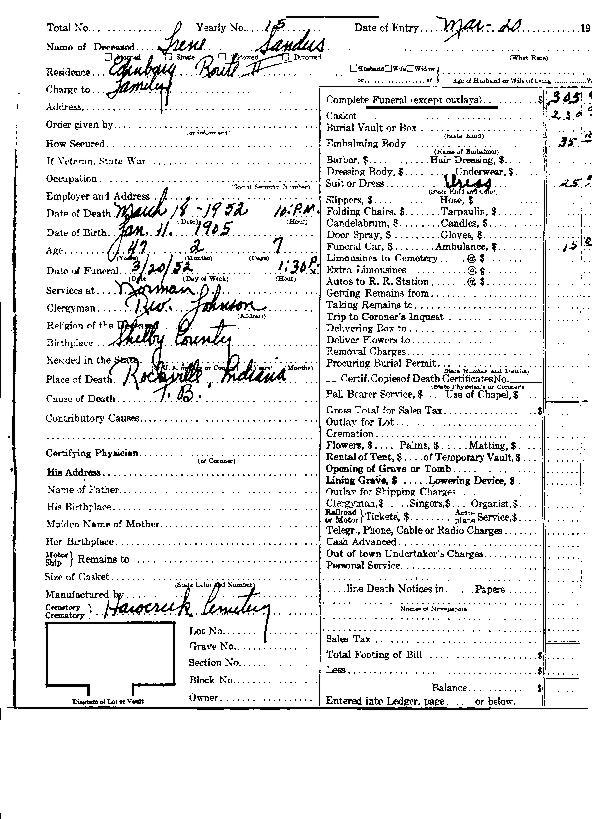 Total No. Yearly No. 15 Date of Entry Mar-20 19
Name of Deceased Irene Sandus
Married Single Widowed Divorced (What Race)
Residence Edinburg Route # Husband Wife Widow
or of Age of Husband or Wife if Living
Charge to family
Address
Order given by
(or informant)
How Secured
If Veteran, State War
Occupation
(Social Security Number)
Employer and Address
Date of Death March 18-1952 10 P.M.
(Date) (Hour)
Date of Birth Jan 11. 1905
Age 47 2 7
(Years) (Months) (Days)
Date of Funeral 3/20/52 1:30 P.
(Date (Day of Week) (Hour)
Services at Norman
(Address)
Clergyman Rev. Johnson
Religion of the
Birthplace Shelby County
Resided in the State
Place of Death Rockville, Indiana
Cause of Death T. B.
Contributory Causes
Certifying Physician
(or Coroner)
His Address
Name of Father
His Birthplace
Maiden Name of Mother
Her Birthplace
Motor Ship } Remains to
Size of Casket
(State Color and Number)
Manufactured by
Cemetery Crematory } Hawcreek Cemetery
Lot No.
Grave No.
Section No.
Block No.
Owner
Diagram of Lot or Vault
Complete Funeral (except outlays) $ 305
Casket 230
Burial Vault or Box
(State Kind)
Embalming Body 35
(Name of Embalmer)
Barber, $ Hair Dressing, $
Dressing Body, $ Underwear, $
Suit or Dress Dress 25
(State Kind and Color)
Slippers, $ Hose, $
Folding Chairs, $ Tarpaulin, $
Candelabrum, $ Candles, $
Door Spray, $ Gloves, $
Funeral Car, $ Ambulance, $ 15
Limousines to Cemetery @ $
Extra Limousines @ $
Autos to R. R. Station @ $
Getting Remains from
Taking Remains to
Trip to Coroner's Inquest
Delivering Box to
Deliver Flowers to
Removal Charges
Procuring Burial Permit
(State Number and Denting)
Certif. Copies of Death Certificates No.
(State Physician's or Coroner's
Pall Bearer Service, $ Use of Chapel, $
Gross Total for Sales Tax $
Outlay for Lot
Cremation
Flowers, $ Palms, $ Matting, $
Rental of Tent, $ of Temporary Vault, $
Opening of Grave or Tomb
Lining Grave, $ Lowering Device, $
Outlay for Shipping Charges
Clergyman, $ Singers, $ Organist, $
Railroad or Motor } Tickets, $ Aero-plane Service, $
Telegr., Phone, Cable or Radio Charges
Cash Advanced
Out of town Undertaker's Charges
Personal Service
line Death Notices in Papers
Names of Newspapers
Sales Tax
Total Footing of Bill $
Less
Balance $
Entered into Ledger, page or below.